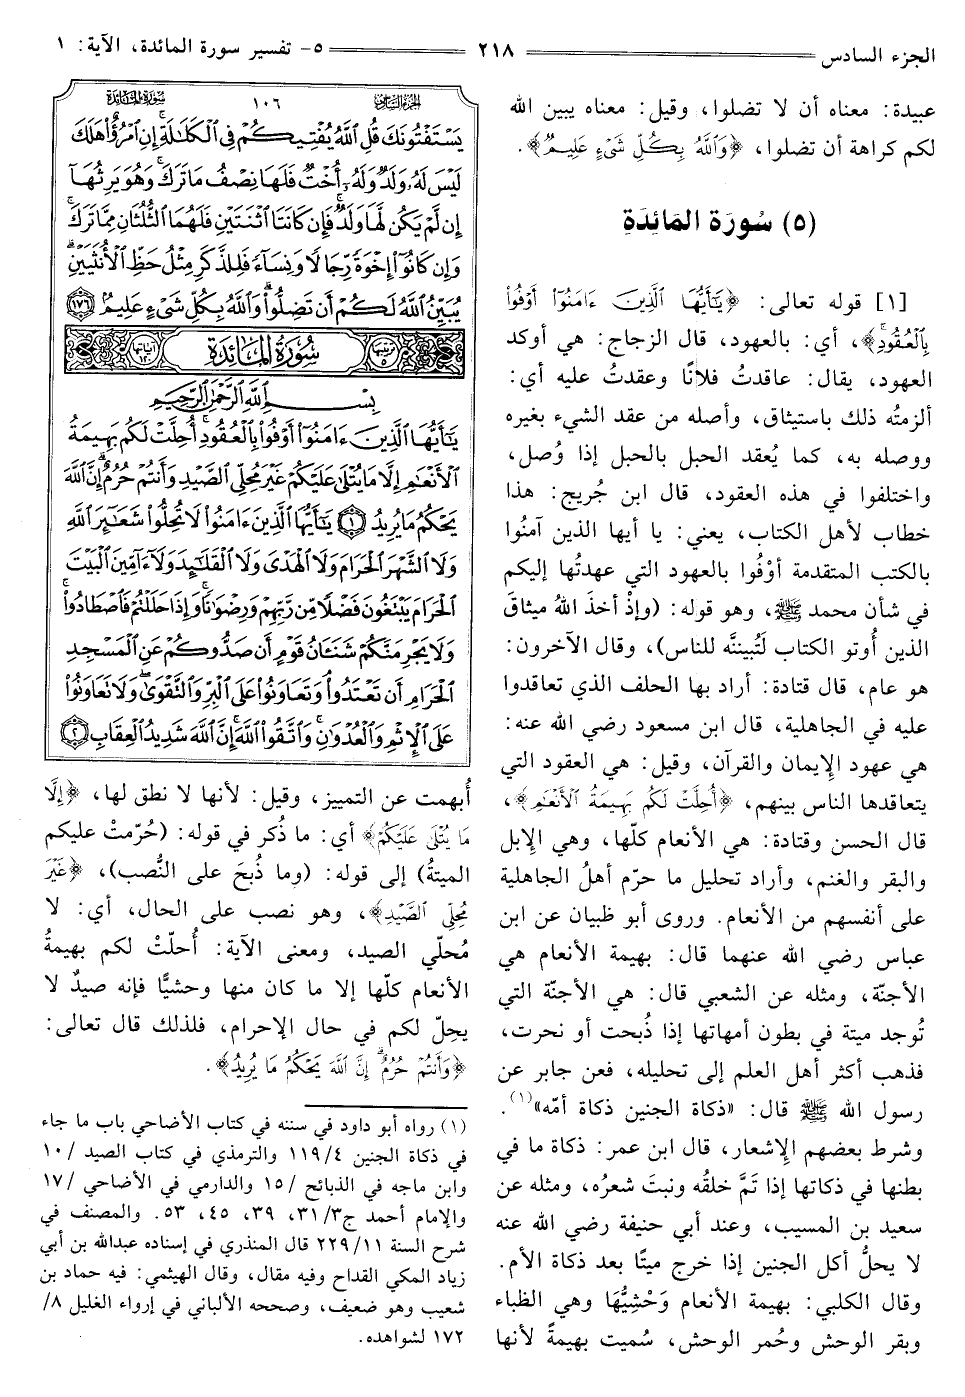 الجزء السادس
٢١٨
٥- تفسير سورة المائدة، الآية: ١
عبيدة: معناه أن لا تضلوا، وقيل: معناه يبين الله
لكم كراهة أن تضلوا، ﴿وَاللَّهُ بِكُلِّ شَيْءٍ عَلِيمٌ﴾.
(٥) سُورَة المَائِدَةِ
[١] قوله تعالى: ﴿يَٰٓأَيُّهَا الَّذِينَ ءَامَنُوٓا أَوْفُوا
بِالْعُقُودِ﴾، أي: بالعهود، قال الزجاج: هي أوكد
العهود، يقال: عاقدتُ فلانًا وعقدتُ عليه أي:
ألزمتُه ذلك باستيثاق، وأصله من عقد الشيء بغيره
ووصله به، كما يُعقد الحبل بالحبل إذا وُصل،
واختلفوا في هذه العقود، قال ابن جُريج: هذا
خطاب لأهل الكتاب، يعني: يا أيها الذين آمنُوا
بالكتب المتقدمة أوْفُوا بالعهود التي عهدتُها إليكم
في شأن محمد ﷺ، وهو قوله: (وإذْ أخذَ اللهُ ميثاقَ
الذين أُوتو الكتاب لَتُبيننَّه للناس)، وقال الآخرون:
هو عام، قال قتادة: أراد بها الحلف الذي تعاقدوا
عليه في الجاهلية، قال ابن مسعود رضي الله عنه:
هي عهود الإيمان والقرآن، وقيل: هي العقود التي
يتعاقدها الناس بينهم، ﴿أُحِلَّتْ لَكُم بَهِيمَةُ الْأَنْعَٰمِ﴾،
قال الحسن وقتادة: هي الأنعام كلّها، وهي الإبل
والبقر والغنم، وأراد تحليل ما حرّم أهلُ الجاهلية
على أنفسهم من الأنعام. وروى أبو ظبيان عن ابن
عباس رضي الله عنهما قال: بهيمة الأنعام هي
الأجنّة، ومثله عن الشعبي قال: هي الأجنّة التي
تُوجد ميتة في بطون أمهاتها إذا ذُبحت أو نحرت،
فذهب أكثر أهل العلم إلى تحليله، فعن جابر عن
رسول الله ﷺ قال: «ذكاة الجنين ذكاة أمّه»(١).
وشرط بعضهم الإشعار، قال ابن عمر: ذكاة ما في
بطنها في ذكاتها إذا تمَّ خلقُه ونبتَ شعرُه، ومثله عن
سعيد بن المسيب، وعند أبي حنيفة رضي الله عنه
لا يحلُّ أكل الجنين إذا خرج ميتًا بعد ذكاة الأم.
وقال الكلبي: بهيمة الأنعام وَحْشِيُّهَا وهي الظباء
وبقر الوحش وحُمر الوحش، سُميت بهيمةً لأنها
الجزء السادس
١٠٦
سورة المائدة
يَسْتَفْتُونَكَ قُلِ اللَّهُ يُفْتِيكُمْ فِي الْكَلَٰلَةِ إِنِ امْرُؤٌا۟ هَلَكَ
لَيْسَ لَهُۥ وَلَدٌ وَلَهُۥٓ أُخْتٌ فَلَهَا نِصْفُ مَا تَرَكَ وَهُوَ يَرِثُهَآ
إِن لَّمْ يَكُن لَّهَا وَلَدٌ فَإِن كَانَتَا اثْنَتَيْنِ فَلَهُمَا الثُّلُثَانِ مِمَّا تَرَكَ
وَإِن كَانُوٓا إِخْوَةً رِّجَالًا وَنِسَآءً فَلِلذَّكَرِ مِثْلُ حَظِّ الْأُنثَيَيْنِ
يُبَيِّنُ اللَّهُ لَكُمْ أَن تَضِلُّوا وَاللَّهُ بِكُلِّ شَيْءٍ عَلِيمٌ ١٧٦
ترتيبها ٥ سُورَةُ المَائِدَةِ آياتها ١٢٠
بِسْمِ اللَّهِ الرَّحْمَٰنِ الرَّحِيمِ
يَٰٓأَيُّهَا الَّذِينَ ءَامَنُوٓا أَوْفُوا بِالْعُقُودِ أُحِلَّتْ لَكُم بَهِيمَةُ
الْأَنْعَٰمِ إِلَّا مَا يُتْلَىٰ عَلَيْكُمْ غَيْرَ مُحِلِّي الصَّيْدِ وَأَنتُمْ حُرُمٌ إِنَّ اللَّهَ
يَحْكُمُ مَا يُرِيدُ ١ يَٰٓأَيُّهَا الَّذِينَ ءَامَنُوا لَا تُحِلُّوا شَعَٰٓئِرَ اللَّهِ
وَلَا الشَّهْرَ الْحَرَامَ وَلَا الْهَدْيَ وَلَا الْقَلَٰٓئِدَ وَلَآ ءَآمِّينَ الْبَيْتَ
الْحَرَامَ يَبْتَغُونَ فَضْلًا مِّن رَّبِّهِمْ وَرِضْوَٰنًا وَإِذَا حَلَلْتُمْ فَاصْطَادُوا
وَلَا يَجْرِمَنَّكُمْ شَنَـَٔانُ قَوْمٍ أَن صَدُّوكُمْ عَنِ الْمَسْجِدِ
الْحَرَامِ أَن تَعْتَدُوا وَتَعَاوَنُوا عَلَى الْبِرِّ وَالتَّقْوَىٰ وَلَا تَعَاوَنُوا
عَلَى الْإِثْمِ وَالْعُدْوَٰنِ وَاتَّقُوا اللَّهَ إِنَّ اللَّهَ شَدِيدُ الْعِقَابِ ٢
أُبهمت عن التمييز، وقيل: لأنها لا نطق لها، ﴿إِلَّا
مَا يُتْلَىٰ عَلَيْكُمْ﴾ أي: ما ذُكر في قوله: (حُرّمتْ عليكم
الميتةُ) إلى قوله: (وما ذُبحَ على النُّصب)، ﴿غَيْرَ
مُحِلِّي الصَّيْدِ﴾، وهو نصب على الحال، أي: لا
مُحلّي الصيد، ومعنى الآية: أُحلّتْ لكم بهيمةُ
الأنعام كلّها إلا ما كان منها وحشيًّا فإنه صيدٌ لا
يحِلّ لكم في حال الإحرام، فلذلك قال تعالى:
﴿وَأَنتُمْ حُرُمٌ إِنَّ اللَّهَ يَحْكُمُ مَا يُرِيدُ﴾.
(١) رواه أبو داود في سننه في كتاب الأضاحي باب ما جاء
في ذكاة الجنين ١١٩/٤ والترمذي في كتاب الصيد /١٠
وابن ماجه في الذبائح /١٥ والدارمي في الأضاحي /١٧
والإمام أحمد ج٣١/٣، ٣٩، ٤٥، ٥٣. والمصنف في
شرح السنة ٢٢٩/١١ قال المنذري في إسناده عبدالله بن أبي
زياد المكي القداح وفيه مقال، وقال الهيثمي: فيه حماد بن
شعيب وهو ضعيف، وصححه الألباني في إرواء الغليل ٨/
١٧٢ لشواهده.